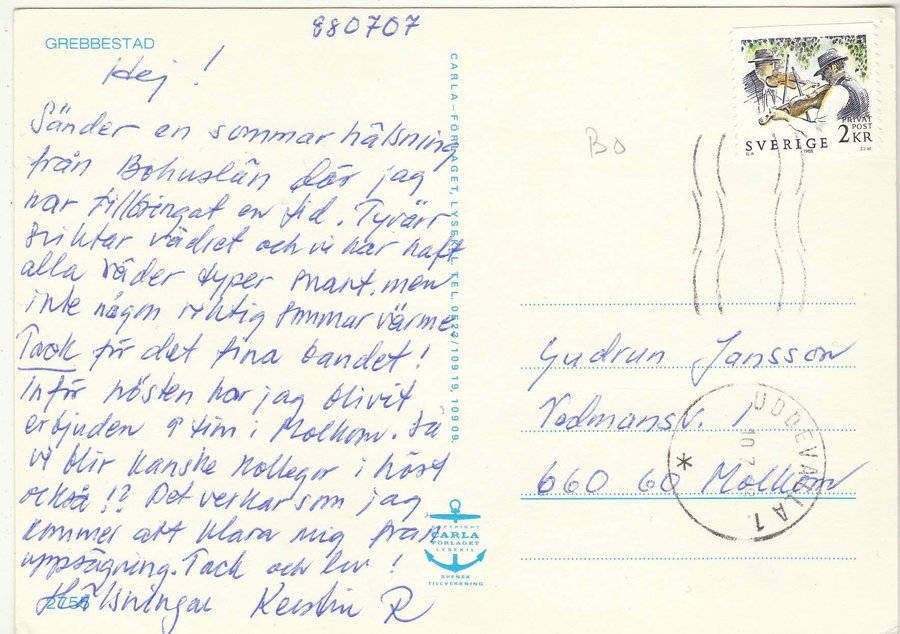 880707
GREBBESTAD
Hej!
Sänder en sommar hälsning
från Bohuslän där jag
har tillbringat en tid. Tyvärr
sviktar vädret och vi har haft
alla väder typer snart, men
inte någon riktig sommar värme
Tack för det fina bandet!
Inför hösten har jag blivit
erbjuden 9 tim i Molkom. Så
vi blir kanske kollegor i höst
också!? Det verkar som jag
kommer att klara mig från
uppsägning. Tack och lev!
Hälsningar Kerstin R
2755
CARLA-FÖRLAGET, LYSEKIL TEL. 0523/10919, 10909.
COPYRIGHT
CARLA
FÖRLAGET
LYSEKIL
SVENSK
TILLVERKNING
Bo
PRIVAT
POST
SVERIGE 2KR
1988
Gudrun Jansson
1
660 60 Molkom
UDDEVALLA 1
10.7